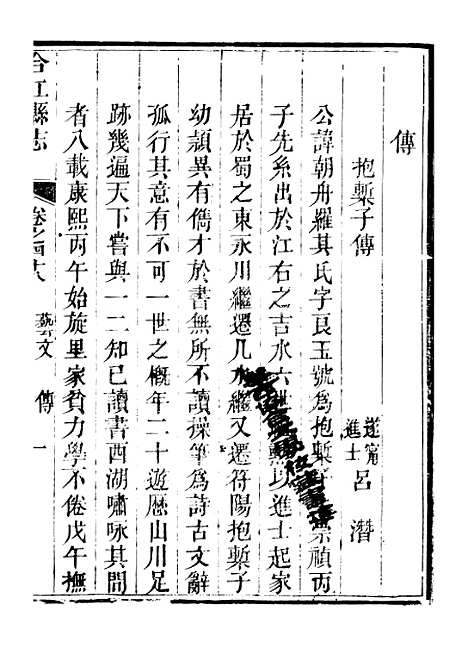 傳
抱槧子傳
遂甯進士呂潛
公諱朝舟羅其氏字艮玉號為抱槧崇禎丙
子先系出於江右之吉水六世以進士起家
居於蜀之東永川繼遷几水繼又遷符陽抱槧子
幼頴異有儁才於書無所不讀操筆為詩古文辭
孤行其意有不可一世之概年二十遊歷山川足
跡幾遍天下嘗與一二知已讀書西湖嘯咏其間
者八載康熙丙午始旋里家貧力學不倦戊午撫
合江縣志
卷之四十八
藝文
傳
一